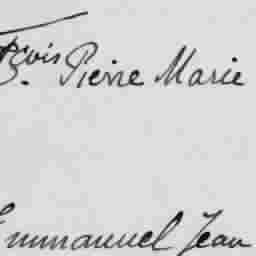 Fçois Pierre Marie
Emmanuel Jean